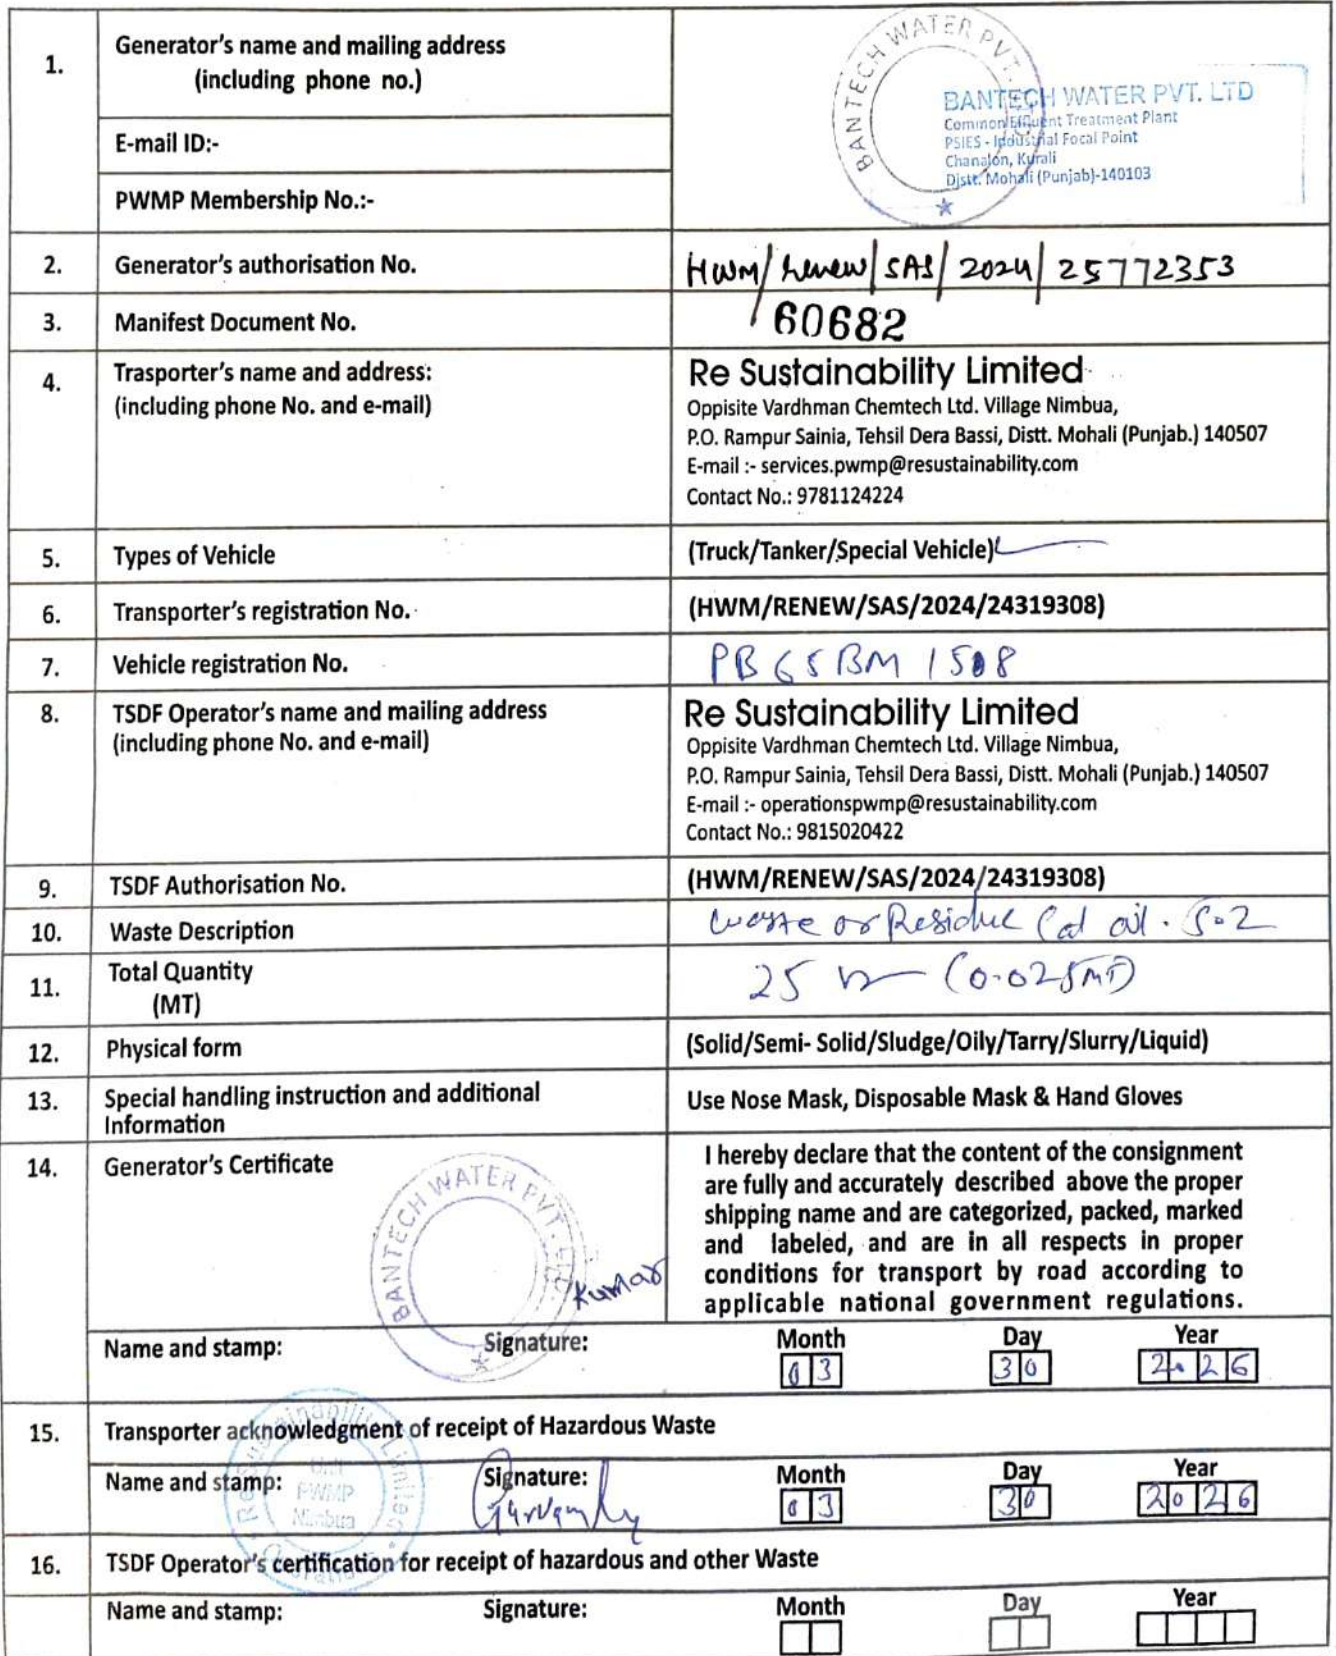 1.
Generator's name and mailing address
(including phone no.)
E-mail ID:-
PWMP Membership No.:-
BANTECH WATER PVT. LTD
BANTECH WATER PVT. LTD
Common Effluent Treatment Plant
PSIES - Industrial Focal Point
Chanalon, Kurali
Distt. Mohali (Punjab)-140103
2. Generator's authorisation No. HWM/Renew/SAS/2024/25772353
3. Manifest Document No. 60682
4. Trasporter's name and address:
(including phone No. and e-mail)
Re Sustainability Limited
Oppisite Vardhman Chemtech Ltd. Village Nimbua,
P.O. Rampur Sainia, Tehsil Dera Bassi, Distt. Mohali (Punjab.) 140507
E-mail :- services.pwmp@resustainability.com
Contact No.: 9781124224
5. Types of Vehicle (Truck/Tanker/Special Vehicle)
6. Transporter's registration No. (HWM/RENEW/SAS/2024/24319308)
7. Vehicle registration No. PB65BM 1508
8. TSDF Operator's name and mailing address
(including phone No. and e-mail)
Re Sustainability Limited
Oppisite Vardhman Chemtech Ltd. Village Nimbua,
P.O. Rampur Sainia, Tehsil Dera Bassi, Distt. Mohali (Punjab.) 140507
E-mail :- operationspwmp@resustainability.com
Contact No.: 9815020422
9. TSDF Authorisation No. (HWM/RENEW/SAS/2024/24319308)
10. Waste Description Waste or Residue Cat oil. 5.2
11. Total Quantity
(MT)
25 (0.025MT)
12. Physical form (Solid/Semi- Solid/Sludge/Oily/Tarry/Slurry/Liquid)
13. Special handling instruction and additional
Information
Use Nose Mask, Disposable Mask & Hand Gloves
14. Generator's Certificate
I hereby declare that the content of the consignment
are fully and accurately described above the proper
shipping name and are categorized, packed, marked
and labeled, and are in all respects in proper
conditions for transport by road according to
applicable national government regulations.
BANTECH WATER PVT. LTD.
Kumar
Name and stamp: Signature: Month Day Year
03 30 2026
15. Transporter acknowledgment of receipt of Hazardous Waste
Name and stamp: Signature: Month Day Year
03 30 2026
Re Sustainability Limited
Unit
PWMP
Nimbua
16. TSDF Operator's certification for receipt of hazardous and other Waste
Name and stamp: Signature: Month Day Year